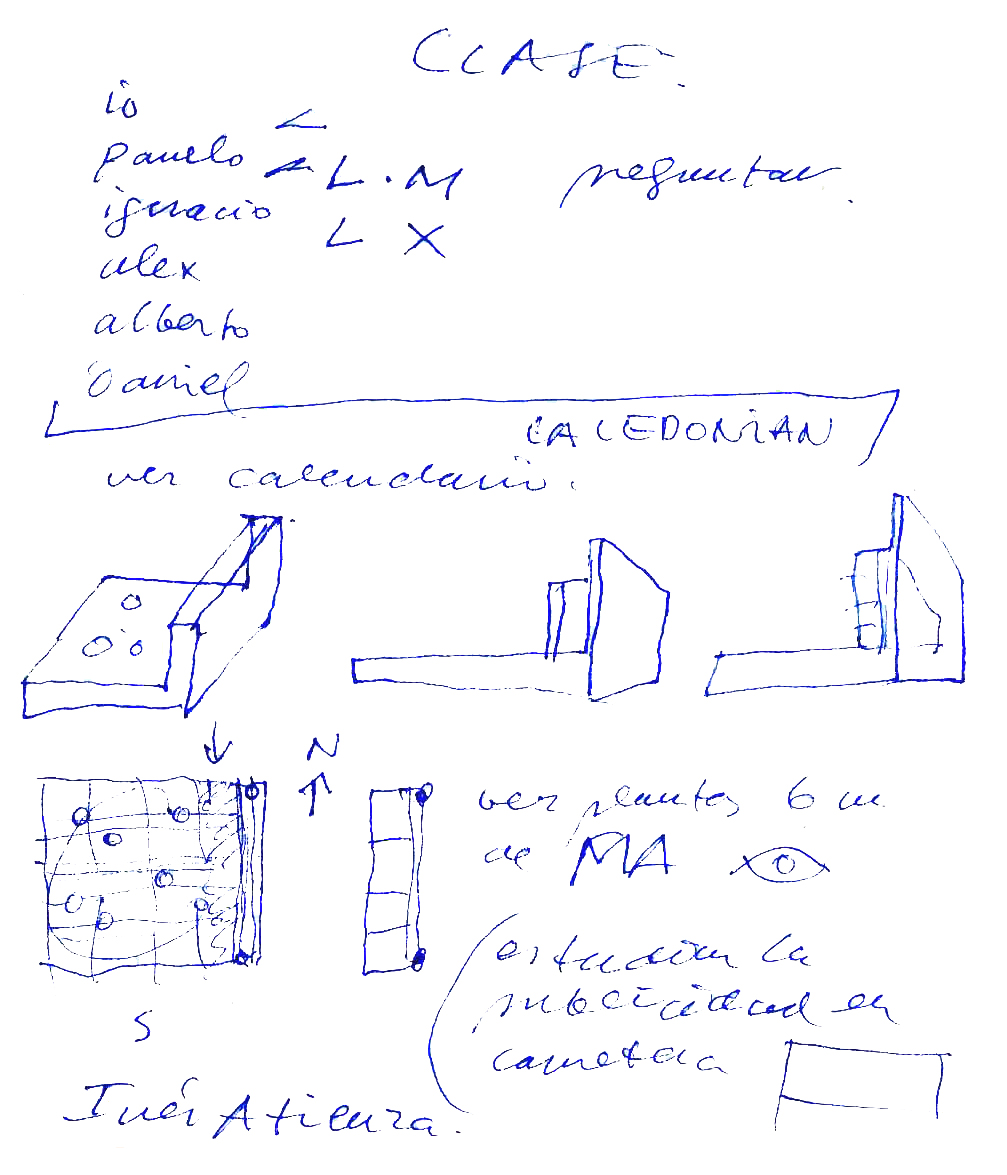 CLASE.
io L
panelo L. M preguntar.
ignacio L X
alex
alberto
Daniel
CALEDONIAN
ver calendario.
N
ver plantas 6 m
de MA
estudiar la
publicidad en
carretera
S
Inés Atienza.